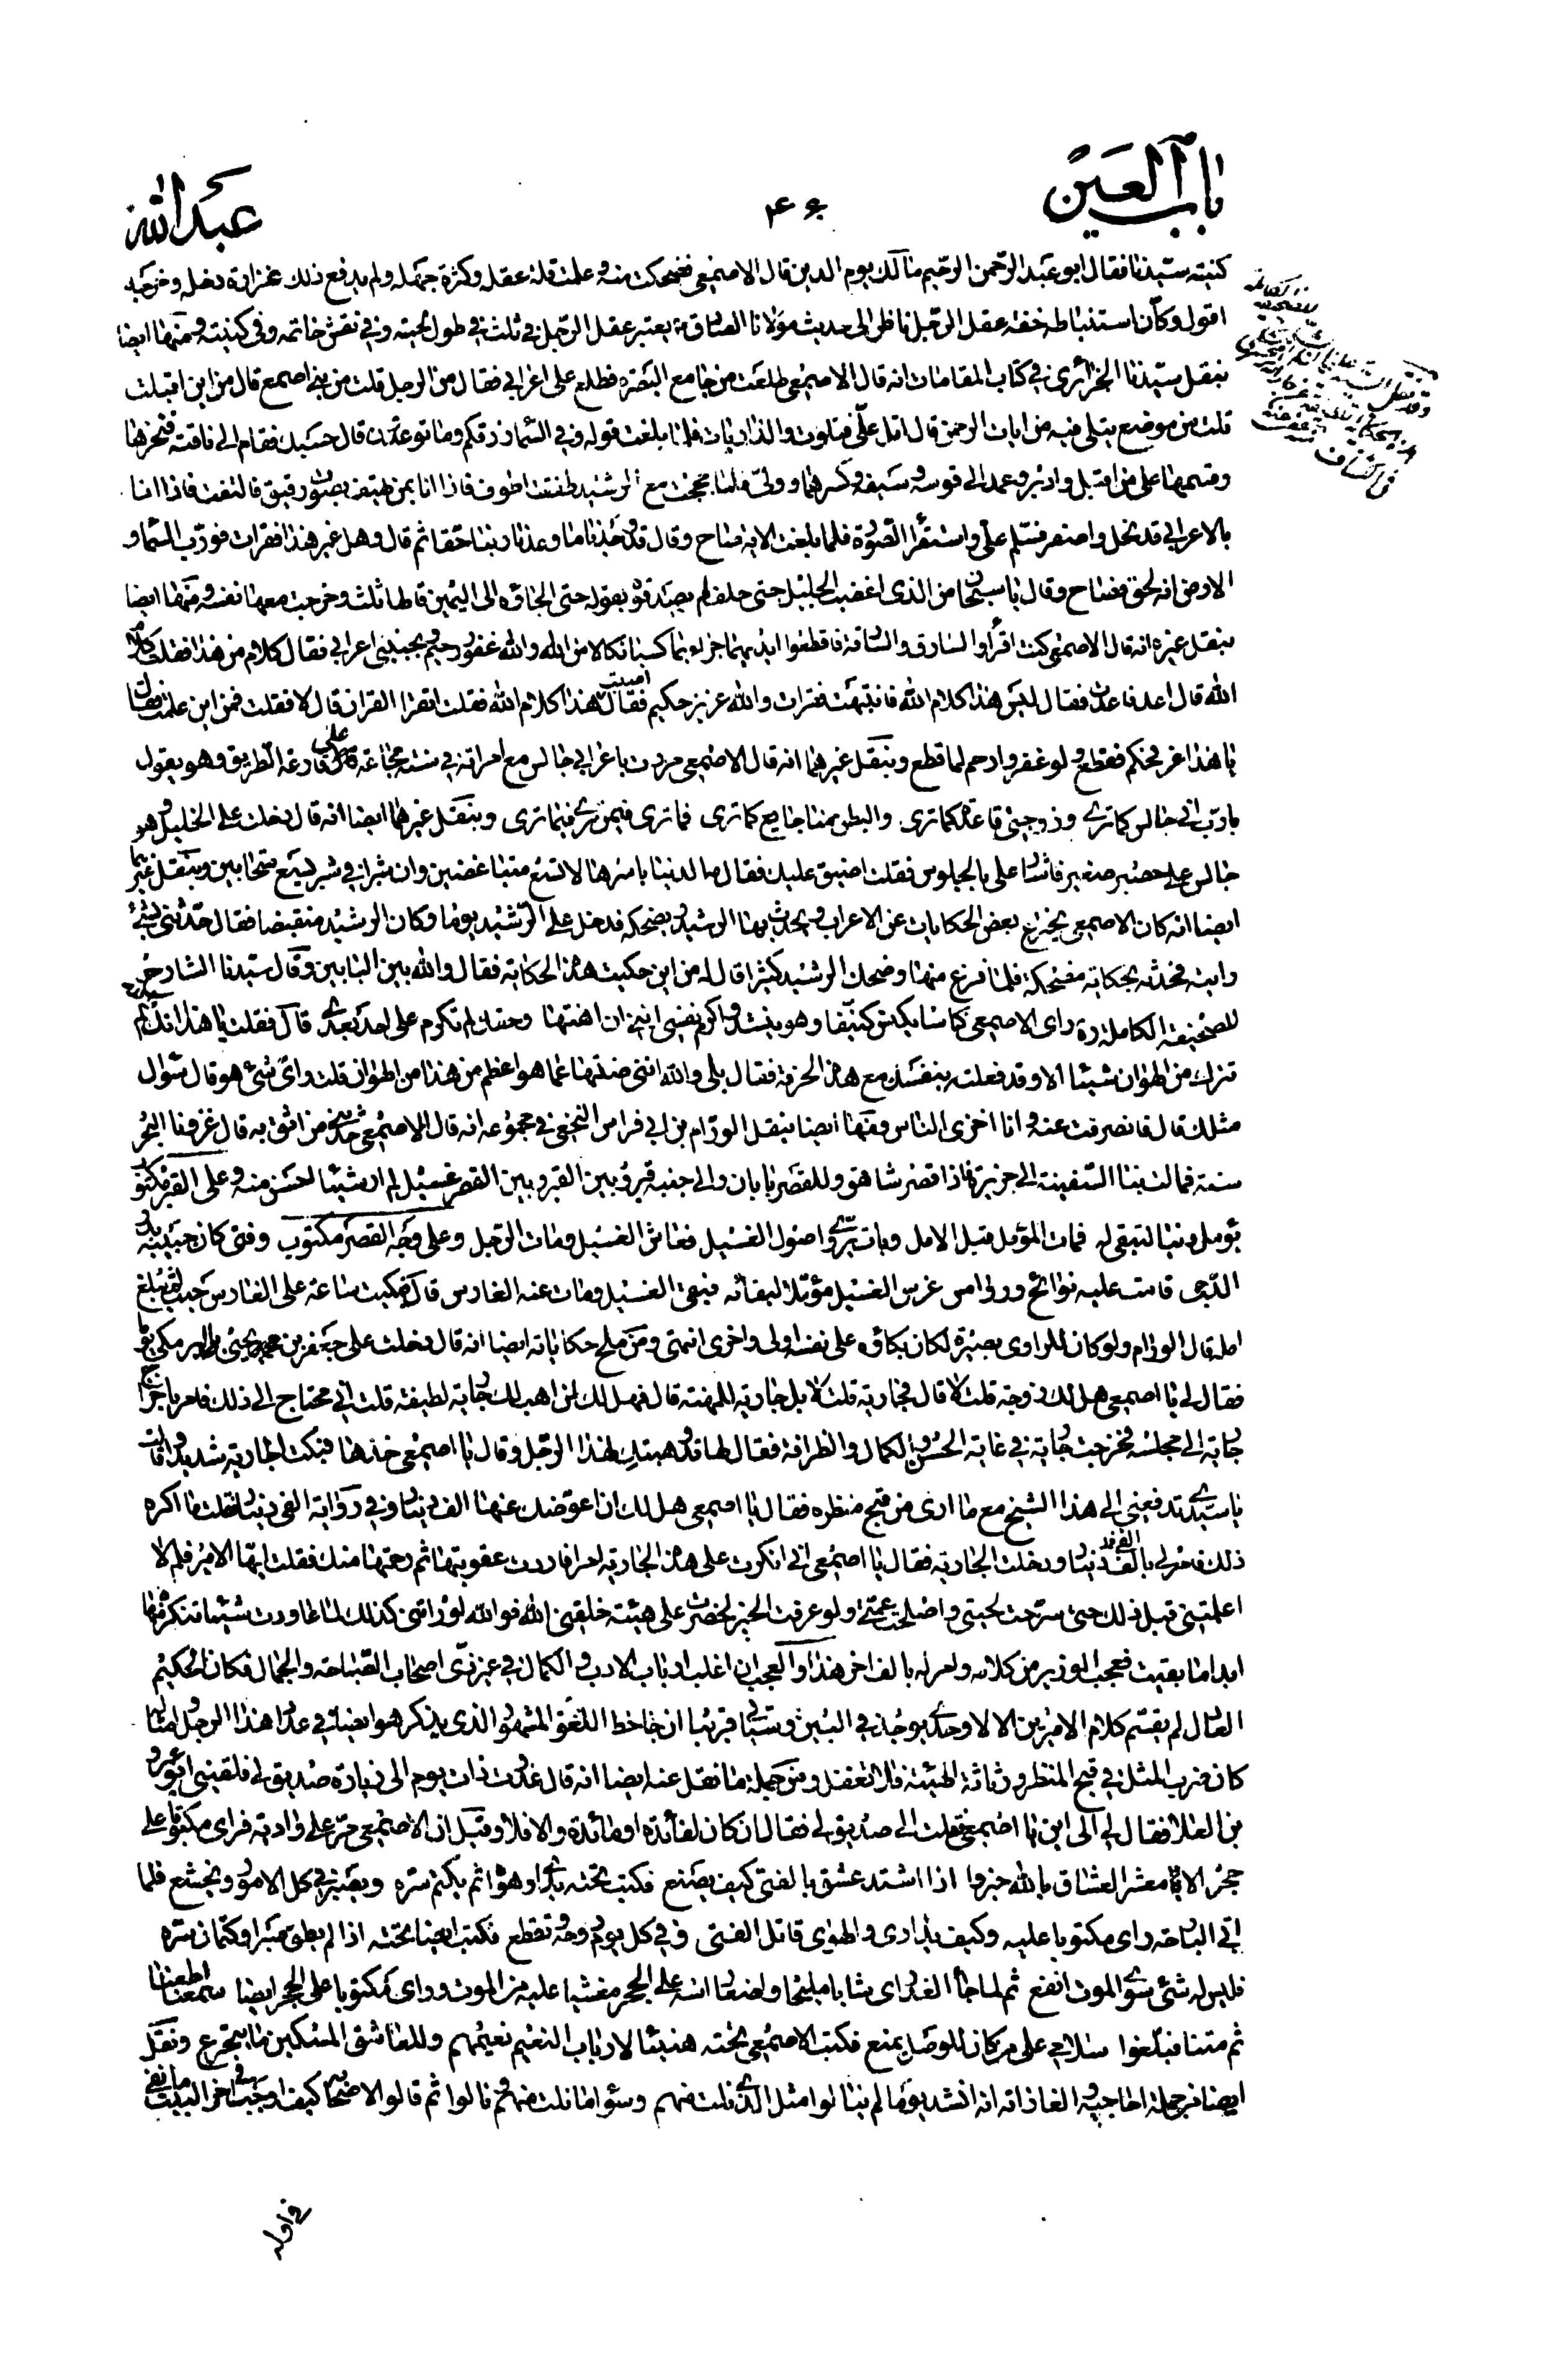 باب العين
عبد الله
كنيته سيدنا فقال ابو عبد الرحمن الرحيم مالك يوم الدين قال الاصمعي فضحكت منه وعلمت قلة عقله وكثرة جهله ولم يدفع ذلك غزارة دخله وخرجه
اقول وكان استنباطه خفة عقل الرجل ناظر الى حديث مولانا الصادق ع يعتبر عقل الرجل في ثلث في طول لحيته وفي نقش خاتمه وفي كنيته ومنها ايضا
بنقل سيدنا الجزائري في كتاب المقامات انه قال الاصمعي طلعت من جامع البصره فطلع على اعرابي فقال من الرجل قلت من بني اصمع قال من اين اقبلت
قلت من موضع يتلى فيه من ايات الرحمن قال اتل علي فتلوت والذاريات فلما بلغت قوله وفي السماء رزقكم وما توعدون قال حسبك فقام الى ناقته فنحرها
وقسمها على من اقبل وادبر وعمد الى قوسه وسيفه وكسرهما وولى فلما حججت مع الرشيد طفقت اطوف فاذا انا بمن يهتف بصوت رقيق فالتفت فاذا انا
بالاعرابي قد نحل واصفر فسلم علي واستقرأ السورة فلما بلغت الاية صاح وقال قد وجدنا ما وعدنا ربنا حقا ثم قال وهل غير هذا فقرات فورب السماء و
الارض انه لحق فصاح وقال يا سبحان من الذي اغضب الجليل حتى حلف لم يصدقوه بقوله حتى الجاؤه الى اليمين قالها ثلث وخرجت معها نفسه ومنها ايضا
بنقل غيره انه قال الاصمعي كنت اقرأ والسارق والسارقة فاقطعوا ايديهما جزاء بما كسبا نكالا من الله والله غفور رحيم وبجنبي اعرابي فقال كلام من هذا فقلت كلام
الله قال اعد فاعدت فقال ليس هذا كلام الله فانتبهت فقرات والله عزيز حكيم فقال اصبت هذا كلام الله فقلت اتقرا القران قال لا فقلت فمن اين علمت فقال
يا هذا عز فحكم فقطع ولو غفر وارحم لما قطع وبنقل غيرهما انه قال الاصمعي مررت باعرابي جالس مع امراته في سنة مجاعة على قارعة الطريق وهو يقول
يا رب اني جالس كما ترى وزوجتي قاعدة كما ترى والبطن منا جايع كما ترى فما ترى فيمن ترى فيما ترى وبنقل غيرهما ايضا انه قال دخلت على الخليل وهو
جالس على حصير صغير فاشار علي بالجلوس فقلت اضيق عليك فقال مه الدنيا باسرها لا تسع متباغضين وان شبرا في شبر يسع متحابين وبنقل غيرهما
ايضا انه كان الاصمعي يخترع بعض الحكايات عن الاعراب ويحدث بها الرشيد ويضحكه فدخل على الرشيد يوما وكان الرشيد منقبضا فقال حدثني بشئ
رايته فحدثه بحكاية مضحكة فلما فرغ منها وضحك الرشيد كثيرا قال له من اين حكيت هذه الحكاية فقال والله بين البابين وقال سيدنا الشارح
للصحيفة الكاملة ره راى الاصمعي كناسا يكنس كنيفا وهو ينشد واكرم نفسي انني ان اهنتها وحقك لم تكرم على احد بعدي قال فقلت يا هذا انك لم
تترك من الهوان شيئا الا وقد فعلته بنفسك مع هذه الحرفة فقال بلى والله انني صنتها عما هو اعظم من هذا من الهوان قلت واي شئ هو قال سؤال
مثلك قال فانصرفت عنه وانا اخزى الناس ومنها ايضا بنقل الورام بن ابي فراس النخعي في مجموعه انه قال الاصمعي حدثني من اثق به قال غزونا البحر
سنة فمالت بنا السفينة الى جزيرة فاذا قصر شاهق وللقصر بابان والى جنبه قبر وبين القبر وبين القصر غسيل لم ار شيئا احسن منه وعلى القبر مكتوب
يؤمل دنيا لتبقى له فمات المؤمل قبل الامل وبات يروي اصول الفسيل فعاش الفسيل ومات الرجل وعلى وجه القصر مكتوب وفتى كان جبينه بدر
الدجى قامت عليه نوائح وروامس غرس الفسيل مؤملا لبقائه فبقى الفسيل ومات عنه الغارس قال فبكيت ساعة على الغارس حيث لم يبلغ
امله قال الورام ولو كان للراوي بصيرة لكان بكاؤه على نفسه اولى واحرى انتهى ومن ملح حكاياته ايضا انه قال دخلت على جعفر بن يحيى البرمكي يوما
فقال لي يا اصمعي هل لك زوجة قلت لا قال فجارية قلت لا بل جارية للمهنة قال فهل لك ان اهب لك جارية لطيفة قلت اني محتاج الى ذلك فامر باخراج
جارية الى مجلسه فخرجت جارية في غاية الحسن والكمال والظرافة فقال لها قد وهبتك لهذا الرجل وقال يا اصمعي خذها فبكت الجارية شديدا وقالت
يا سيدي تدفعني الى هذا الشيخ مع ما ارى من قبح منظره فقال يا اصمعي هل لك ان اعوضك عنها الف دينار وفي رواية الفي دينار فقلت ما اكره
ذلك فامر لي بالف دينار ودخلت الجارية فقال يا اصمعي اني انكرت على هذه الجارية امرا فاردت عقوبتها ثم رحمتها منك فقلت ايها الامير فلم لا
اعلمتني قبل ذلك حتى سرحت لحيتي واصلحت عمتي ولو عرفت الخبر لحضرت على هيئة خلقني الله فوالله لو راتني كذلك لما عاودت شيئا تنكره منها
ابدا ما بقيت فعجب الوزير من كلامه وامر له بالف اخر هذا والعجب ان اغلب ارباب الادب والكمال في غير زي اصحاب الصباحة والجمال فكان الحكيم
العادل لم يقسم كلام الامرين الا لاوحدي يوجد في البين وسياتي قريبا ان جاحظ اللغوي المشهور الذي يذكر هو ايضا في عداد هذا الرجل وامثاله
كان ضرب المثل في قبح المنظر ورثاثة الهيئة فلا تغفل ومن جملة ما نقل عنه ايضا انه قال غدوت ذات يوم الى زيارة صديق لي فلقيني ابو عمرو
بن العلا فقال لي الى اين يا اصمعي فقلت الى صديق لي فقال ان كان لفائدة او مائدة والا فلا وقيل ان الاصمعي مر على وادية فراى مكتوبا على
حجر الا يا معشر العشاق بالله خبروا اذا اشتد عشق بالفتى كيف يصنع فكتب تحته يداري هواه ثم يكتم سره ويصبر في كل الامور ويخشع فلما
اتى البارحة راى مكتوبا عليه وكيف يداري والهوى قاتل الفتى وفي كل يوم روحه تقطع فكتب ايضا تحته اذا لم يطق صبرا وكتمان سره
فليس له شئ سوى الموت انفع ثم لما جاء الغد راى شابا مليحا واضعا راسه على الحجر مغشيا عليه من الموت وراى مكتوبا على الحجر ايضا سمعنا اطعنا
ثم متنا فبلغوا سلامي على من كان للوصل يمنع فكتب الاصمعي تحته هنيئا لارباب النعيم نعيمهم وللعاشق المسكين ما يتجرع ونقل
ايضا من جملة احاجيه والغازاته انه انشد يوما لم ينالوا مثل الذي نلت منهم وسؤا ما نلت منهم ونالوا ثم قالوا لاضحابه كيف اخر البيت